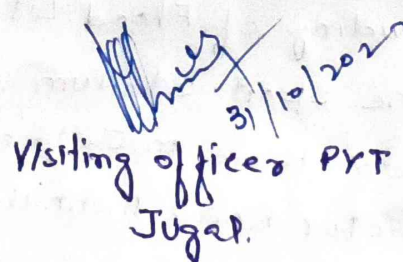 31/10/202
Visiting officer PVT
Jugal.